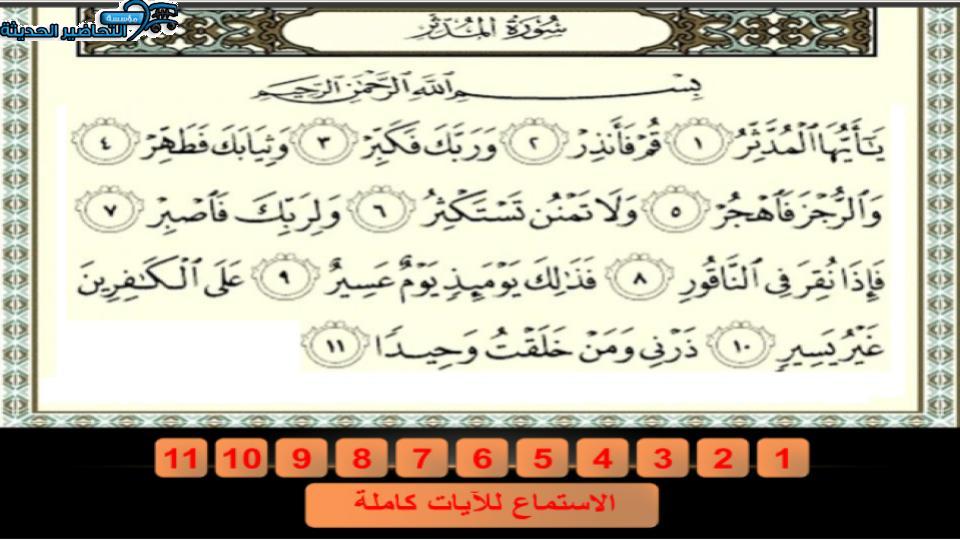 مؤسسة
التحاضير الحديثة
سُورَةُ المُدَّثِّر
بِسْمِ اللَّهِ الرَّحْمَٰنِ الرَّحِيمِ
يَٰٓأَيُّهَا ٱلْمُدَّثِّرُ ١ قُمْ فَأَنذِرْ ٢ وَرَبَّكَ فَكَبِّرْ ٣ وَثِيَابَكَ فَطَهِّرْ ٤
وَٱلرُّجْزَ فَٱهْجُرْ ٥ وَلَا تَمْنُن تَسْتَكْثِرُ ٦ وَلِرَبِّكَ فَٱصْبِرْ ٧
فَإِذَا نُقِرَ فِى ٱلنَّاقُورِ ٨ فَذَٰلِكَ يَوْمَئِذٍ يَوْمٌ عَسِيرٌ ٩ عَلَى ٱلْكَٰفِرِينَ
غَيْرُ يَسِيرٍ ١٠ ذَرْنِى وَمَنْ خَلَقْتُ وَحِيدًا ١١
1 2 3 4 5 6 7 8 9 10 11
الاستماع للآيات كاملة